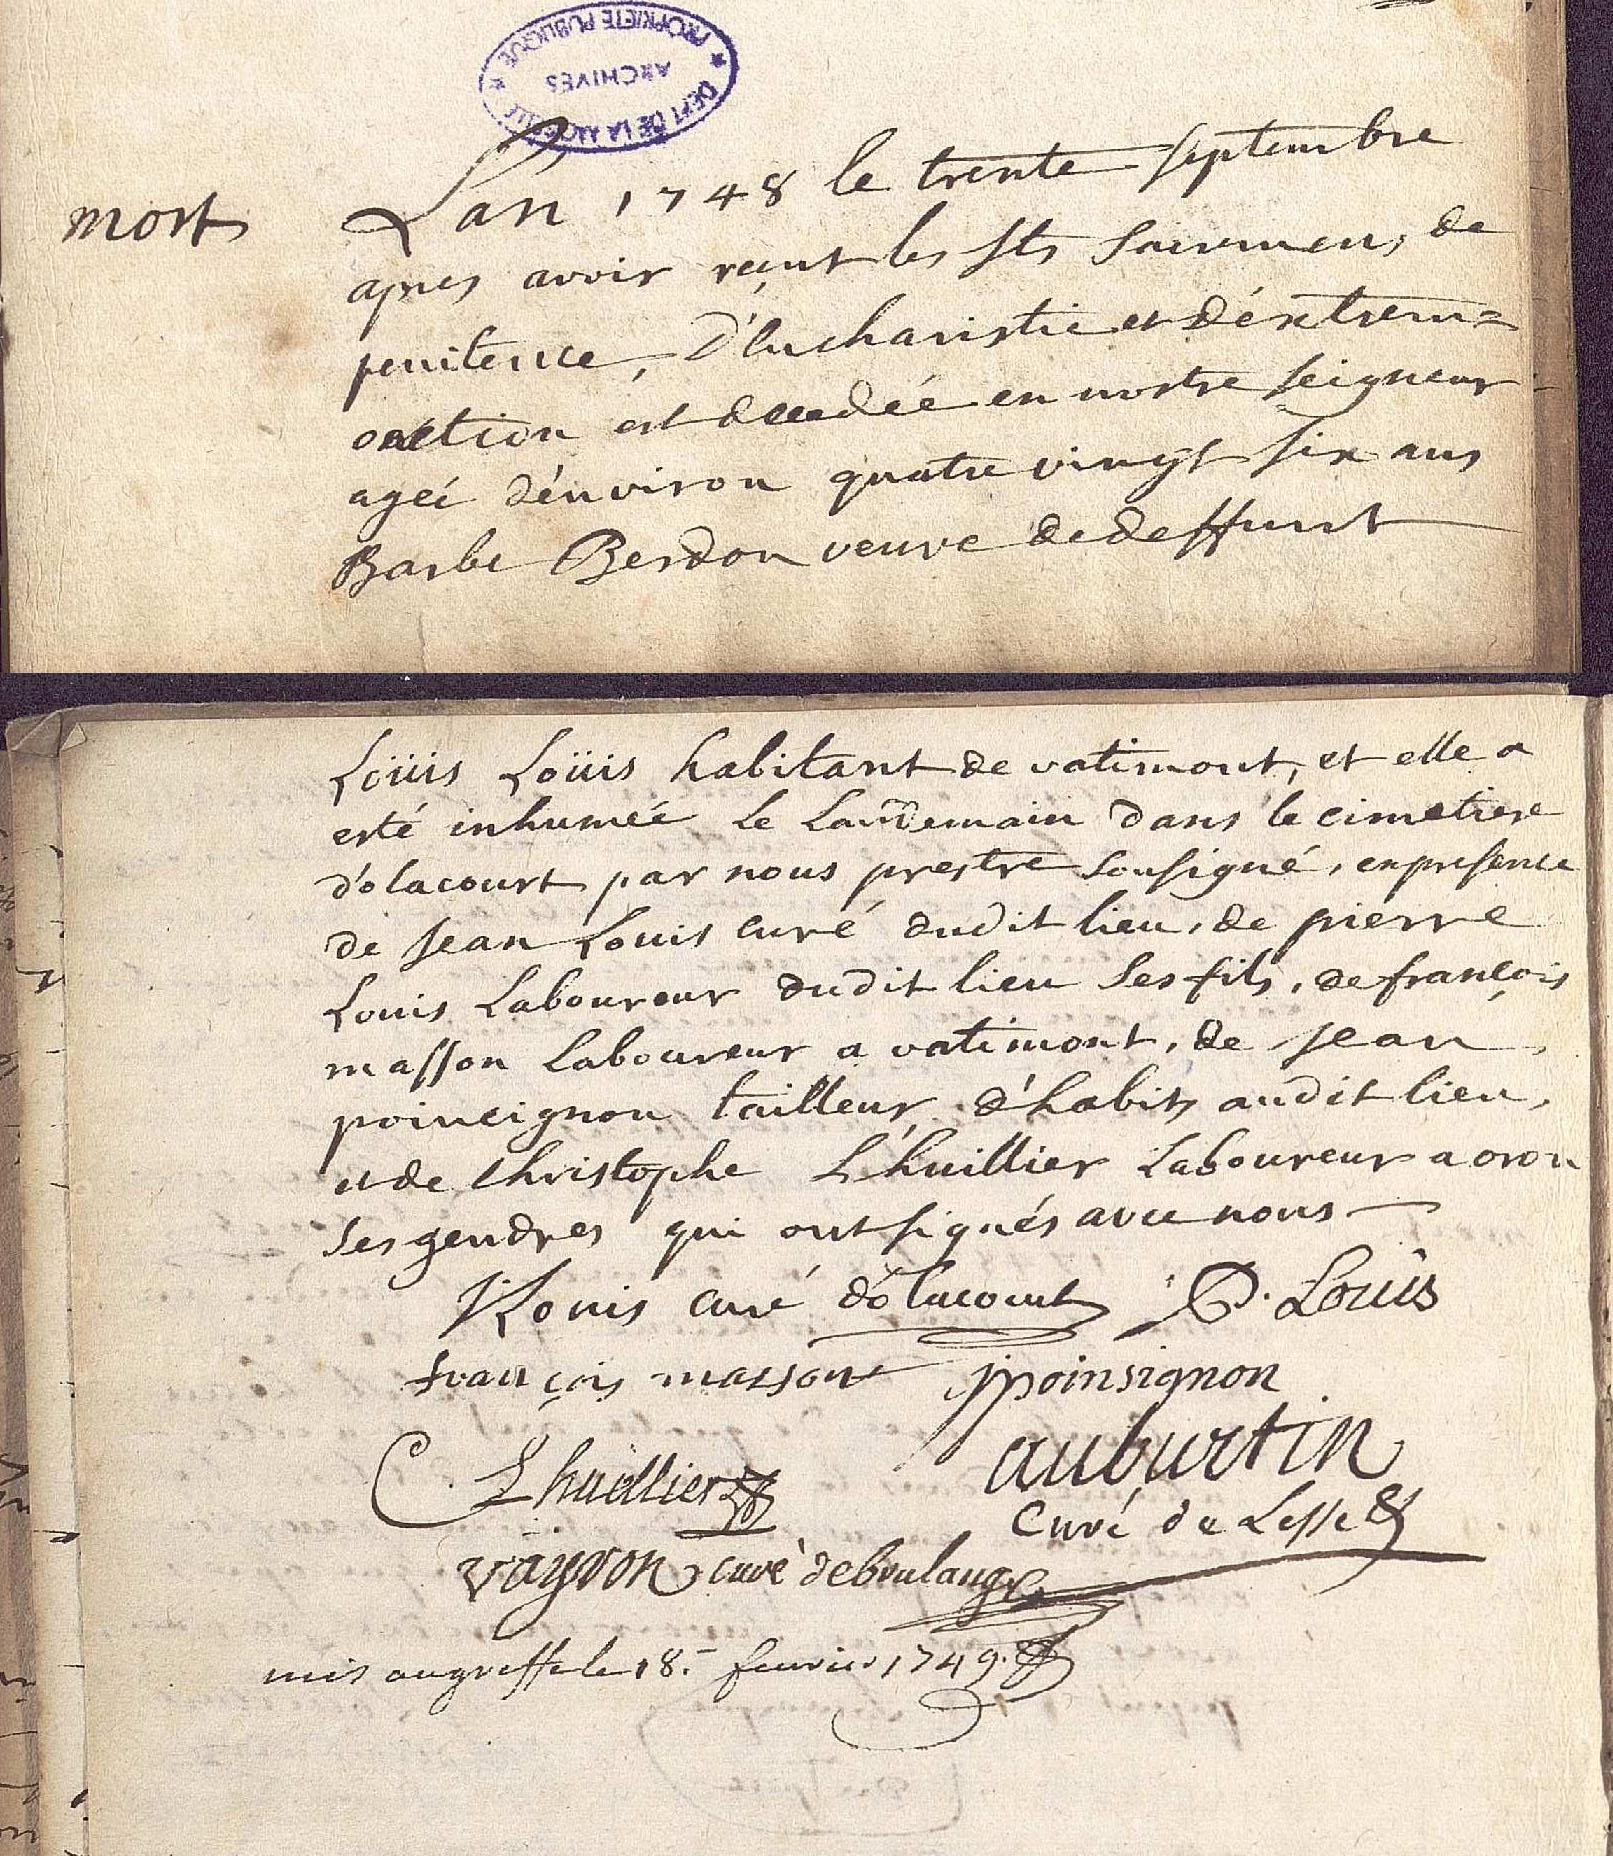 DEPT DE LA MOSELLE * PROPRIETE PUBLIQUE *
ARCHIVES
mort
Lan 1748 le trente septembre
apres avoir reçut les Sts Sacremens de
penitence, D'Eucharistie et d'éxtrem=
onction est decedeé en nostre seigneur
ageé d'énviron quatre vingt six ans
Barbe Berdon veuve de deffunt
Loüis Loüis habitant de vatimont, et elle a
esté inhumeé le Landemain dans le cimetiere
d'olacourt par nous prestre Sousigné, en presence
de Jean Louis curé dudit lieu, de pierre
Louis Laboureur dudit lieu Ses fils, de françois
masson Laboureur a vatimont, de Jean
poincignon tailleur d'habits audit lieu,
et de Christophe L'huillier Laboureur a oron
Ses gendres qui ont signés avec nous
J Louis curé d'olacourt P. Louis
françois masson jpoinsignon
C. Lhuillier auburtin
curé de Lesse
vayron curé de boulange
mis au greffe le 18. fevrier 1749.